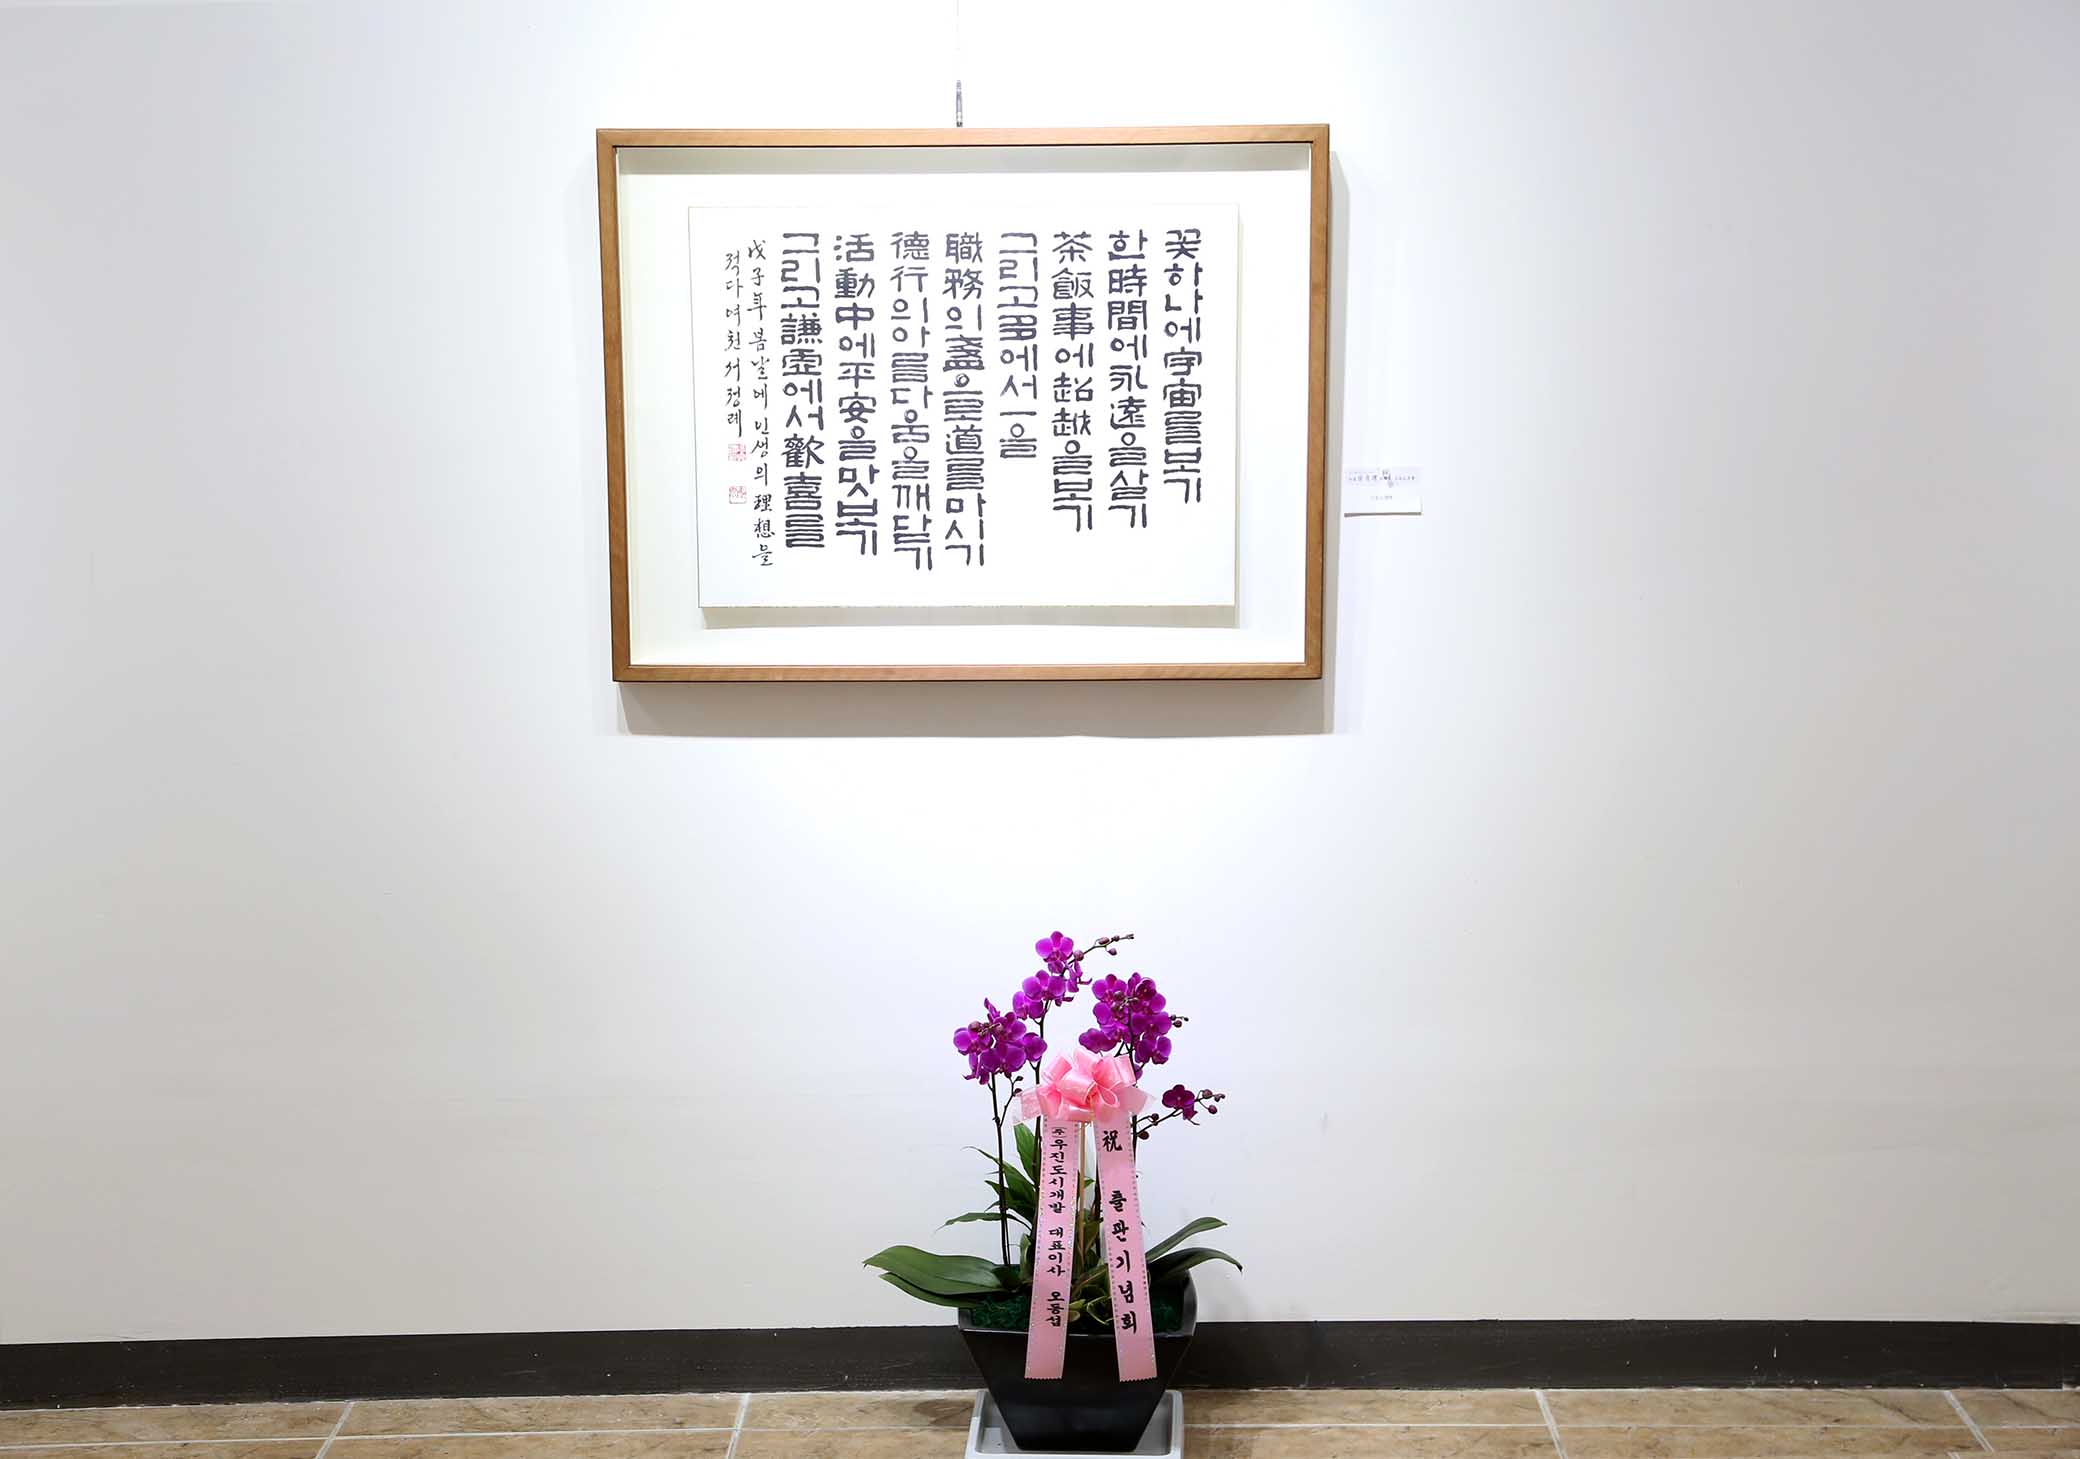 꽃하나에宇宙를보기
한時間에永遠을살기
茶飯事에超越을보기
그리고多에서一을
職務의盞으로道를마시기
德行의아름다움을깨닫기
活動中에平安을맛보기
그리고謙虛에서歡喜를
戊子年 봄날에 인생의 理想을
적다 여천 서정례
祝 출판기념회
(주)우진도시개발 대표이사 오동섭